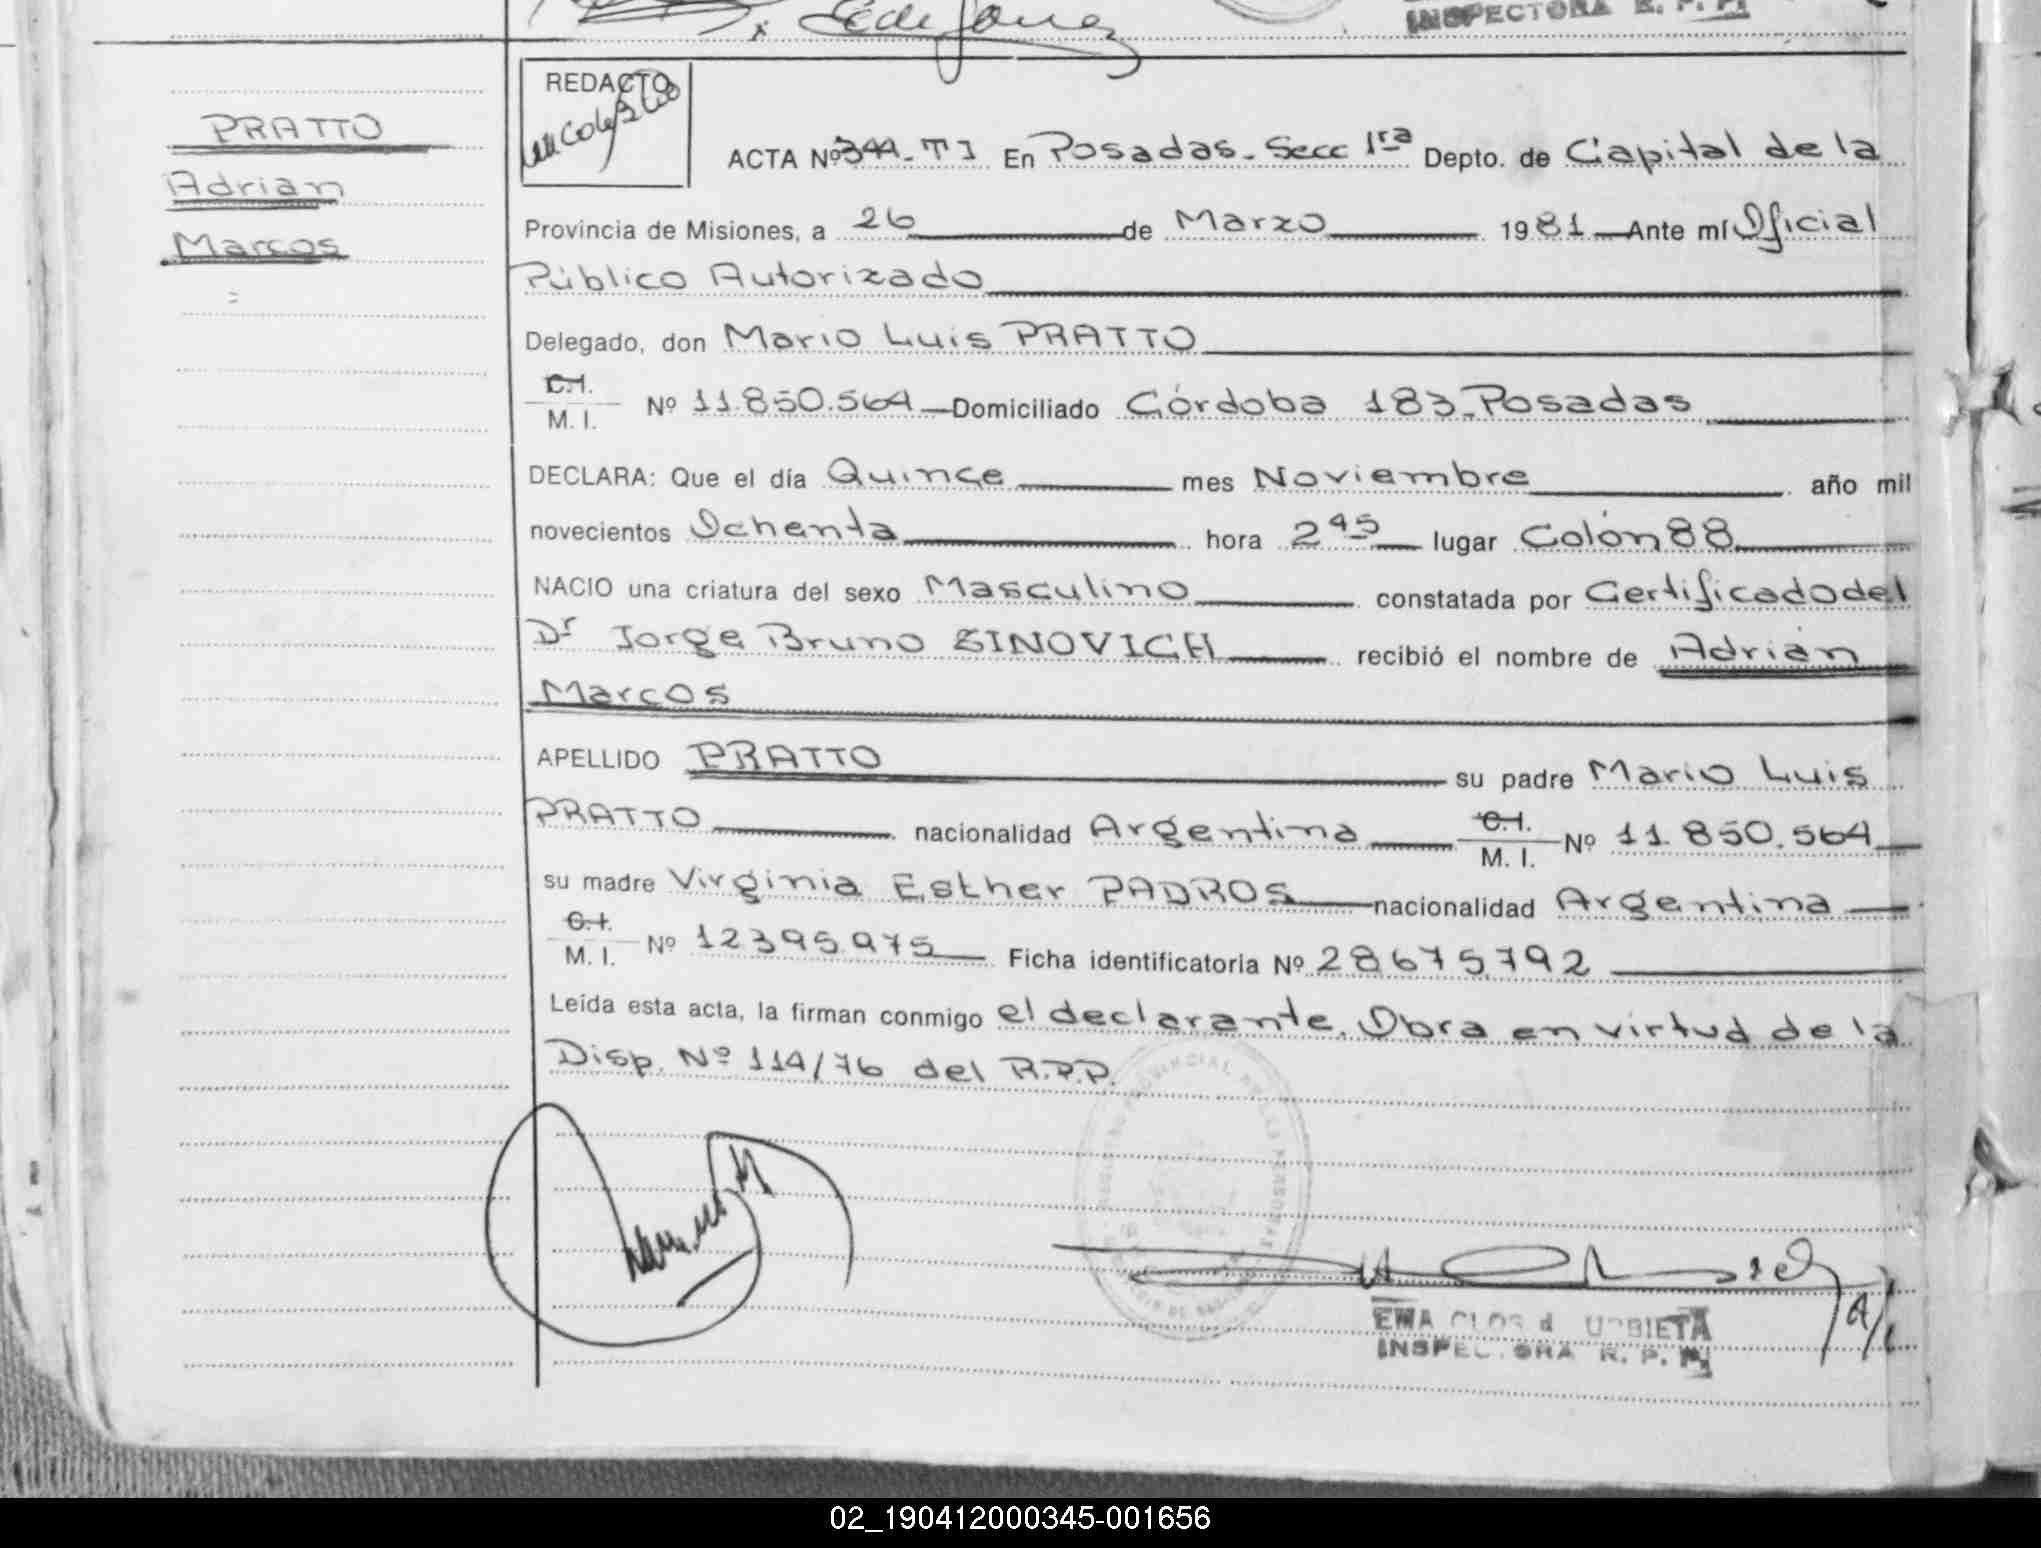 INSPECTORA R. P. P.
PRATTO
Adrian
Marcos
=
REDACTO
ACTA Nº 344 - T I En Posadas - Secc 1ra Depto. de Capital de la
Provincia de Misiones, a 26 de Marzo 1981 Ante mí Oficial
Público Autorizado
Delegado, don Mario Luis PRATTO
C.I.
M. I. Nº 11.850.564 Domiciliado Córdoba 183-Posadas
DECLARA: Que el día Quince mes Noviembre año mil
novecientos Ochenta hora 2 45 lugar Colón 88
NACIO una criatura del sexo Masculino constatada por Certificado del
Dr Jorge Bruno SINOVICH recibió el nombre de Adrián
Marcos
APELLIDO PRATTO su padre Mario Luis
PRATTO nacionalidad Argentina C.I.
M. I. Nº 11.850.564
su madre Virginia Esther PADROS nacionalidad Argentina
C.I.
M. I. Nº 12395975 Ficha identificatoria Nº 28675792
Leída esta acta, la firman conmigo el declarante. Obra en virtud de la
Disp. Nº 114/76 del R.P.P.
URBIETA
INSPECTORA R. P. P.
02_190412000345-001656